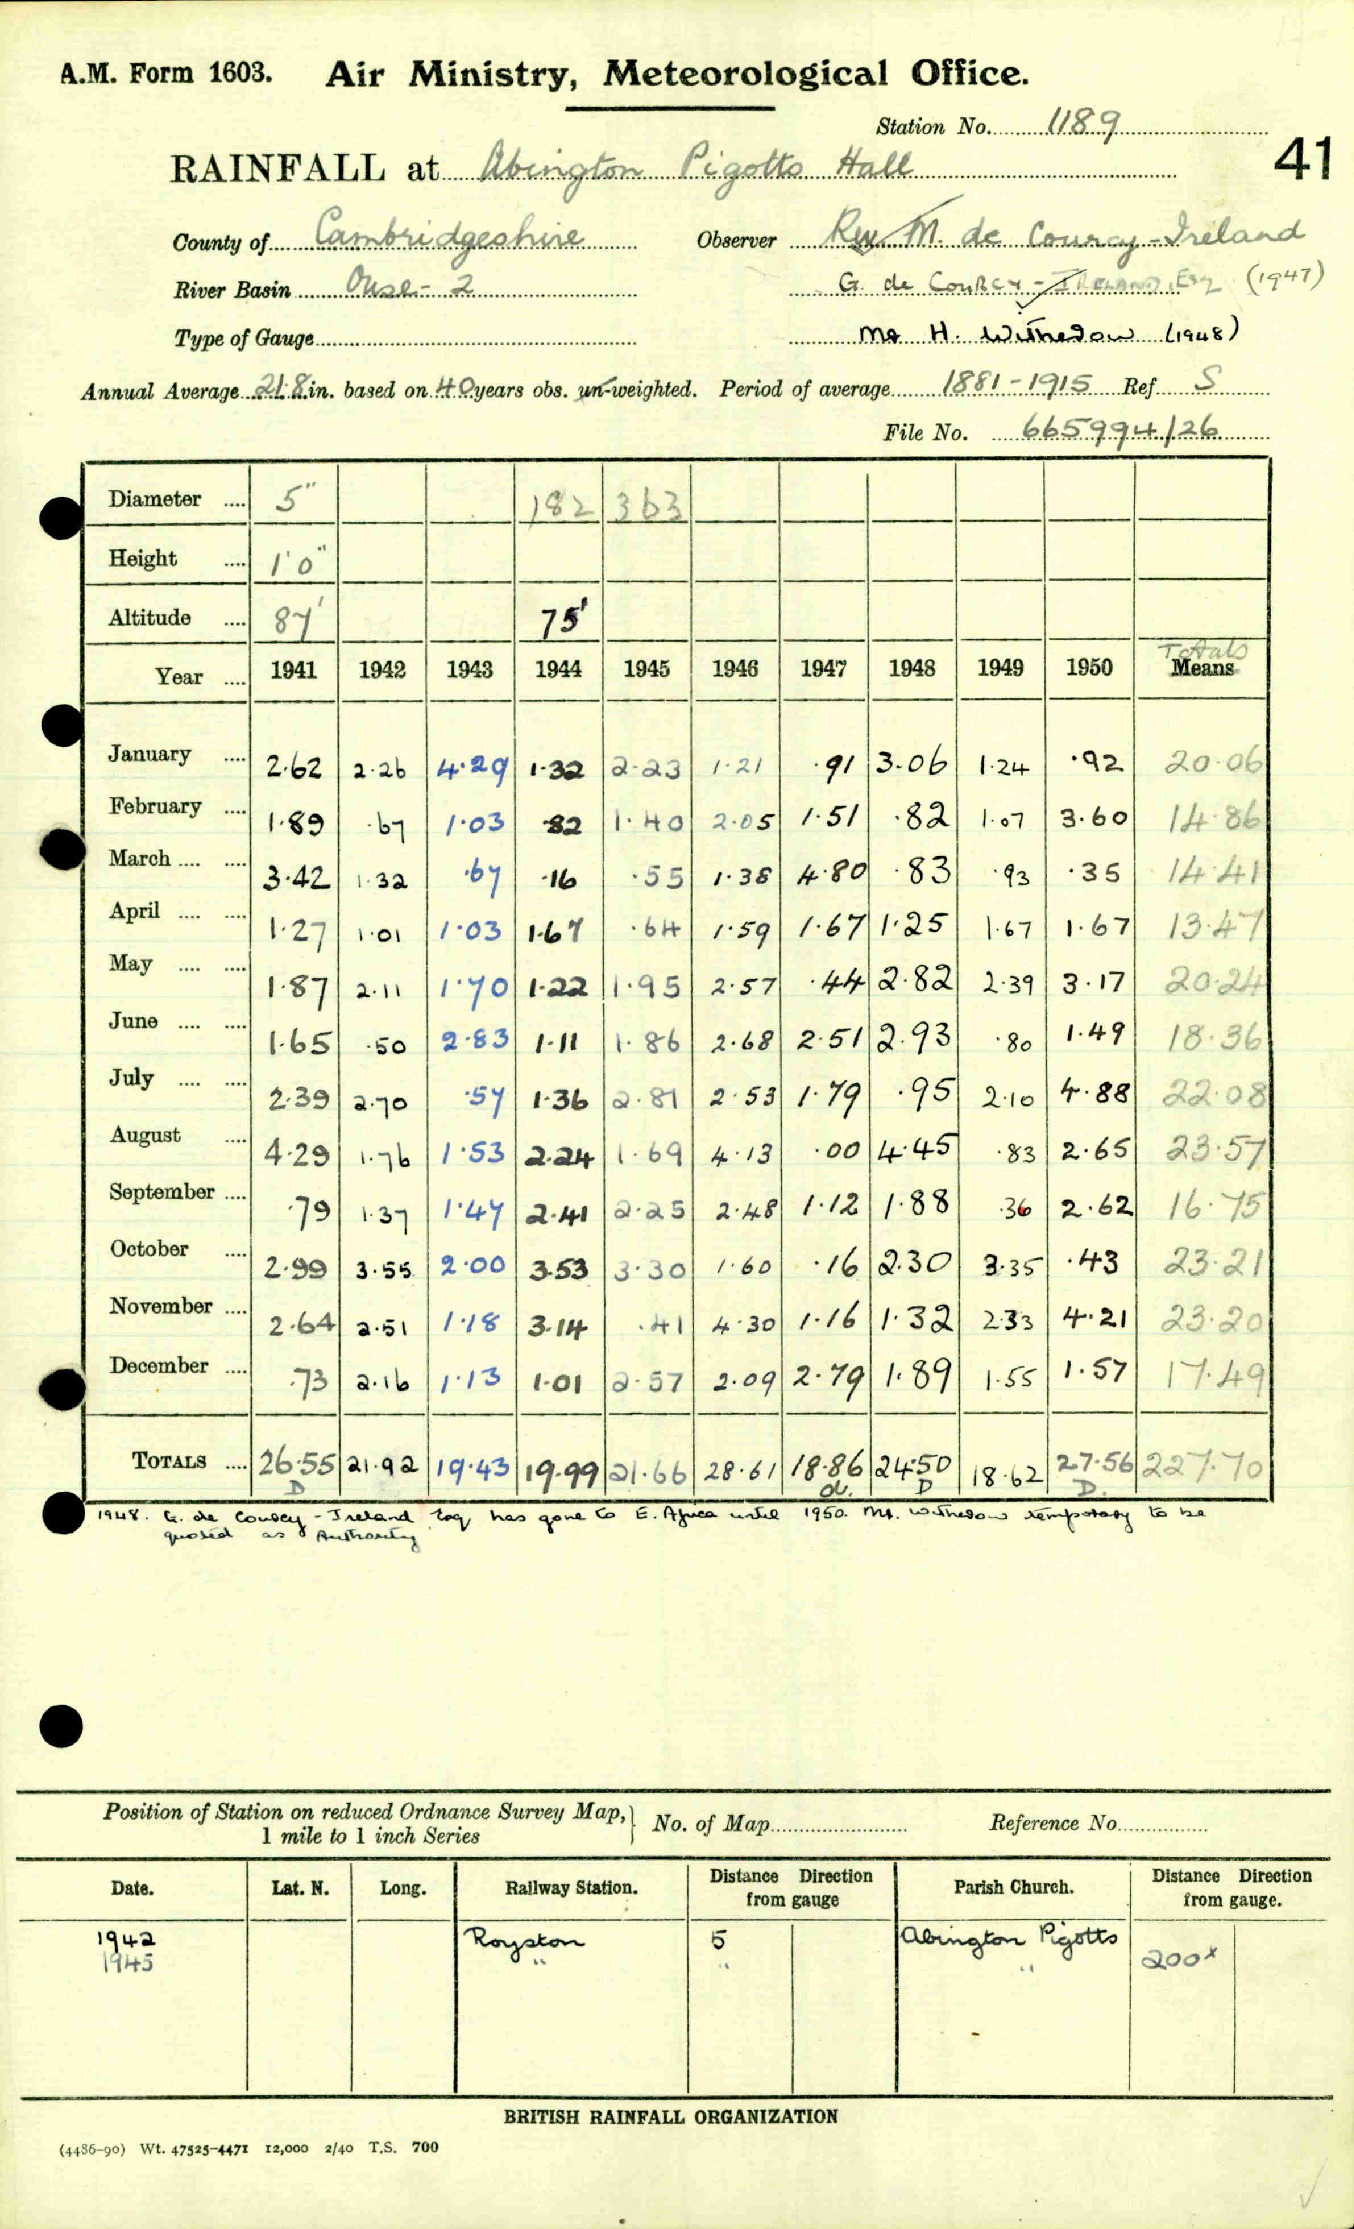 A.M. Form 1603. Air Ministry, Meteorological Office.
Station No. 1189
41
RAINFALL at Abington Pigotts Hall
County of Cambridgeshire Observer Rev M. de Courcy-Ireland
River Basin Ouse-2 G. de Courcy-Ireland, Esq (1947)
Type of Gauge Mr H. Withedow (1948)
Annual Average 21.8 in. based on 40 years obs. un-weighted. Period of average 1881-1915 Ref S
File No. 665994/26
Diameter 5" 182 363
Height 1'0"
Altitude 87' 75'
Totals
Year 1941 1942 1943 1944 1945 1946 1947 1948 1949 1950 Means
January 2.62 2.26 4.29 1.32 2.23 1.21 .91 3.06 1.24 .92 20.06
February 1.89 .67 1.03 .82 1.40 2.05 1.51 .82 1.07 3.60 14.86
March 3.42 1.32 .67 .16 .55 1.38 4.80 .83 .93 .35 14.41
April 1.27 1.01 1.03 1.67 .64 1.59 1.67 1.25 1.67 1.67 13.47
May 1.87 2.11 1.70 1.22 1.95 2.57 .44 2.82 2.39 3.17 20.24
June 1.65 .50 2.83 1.11 1.86 2.68 2.51 2.93 .80 1.49 18.36
July 2.39 2.70 .57 1.36 2.81 2.53 1.79 .95 2.10 4.88 22.08
August 4.29 1.76 1.53 2.24 1.69 4.13 .00 4.45 .83 2.65 23.57
September .79 1.37 1.47 2.41 2.25 2.48 1.12 1.88 .36 2.62 16.75
October 2.99 3.55 2.00 3.53 3.30 1.60 .16 2.30 3.35 .43 23.21
November 2.64 2.51 1.18 3.14 .41 4.30 1.16 1.32 2.33 4.21 23.20
December .73 2.16 1.13 1.01 2.57 2.09 2.79 1.89 1.55 1.57 17.49
TOTALS 26.55 21.92 19.43 19.99 21.66 28.61 18.86 24.50 18.62 27.56 227.70
D d. D D.
1948. G. de Courcy-Ireland Esq, has gone to E. Africa until 1950. Mr. Withedow temporary to be
quoted as Authority
Position of Station on reduced Ordnance Survey Map, 1 mile to 1 inch Series No. of Map Reference No.
Date. Lat. N. Long. Railway Station. Distance Direction from gauge Parish Church. Distance Direction from gauge.
1942 Royston 5 Abington Pigotts
1945 " " " 200x
BRITISH RAINFALL ORGANIZATION
(4486-90) Wt. 47525-4471 12,000 2/40 T.S. 700